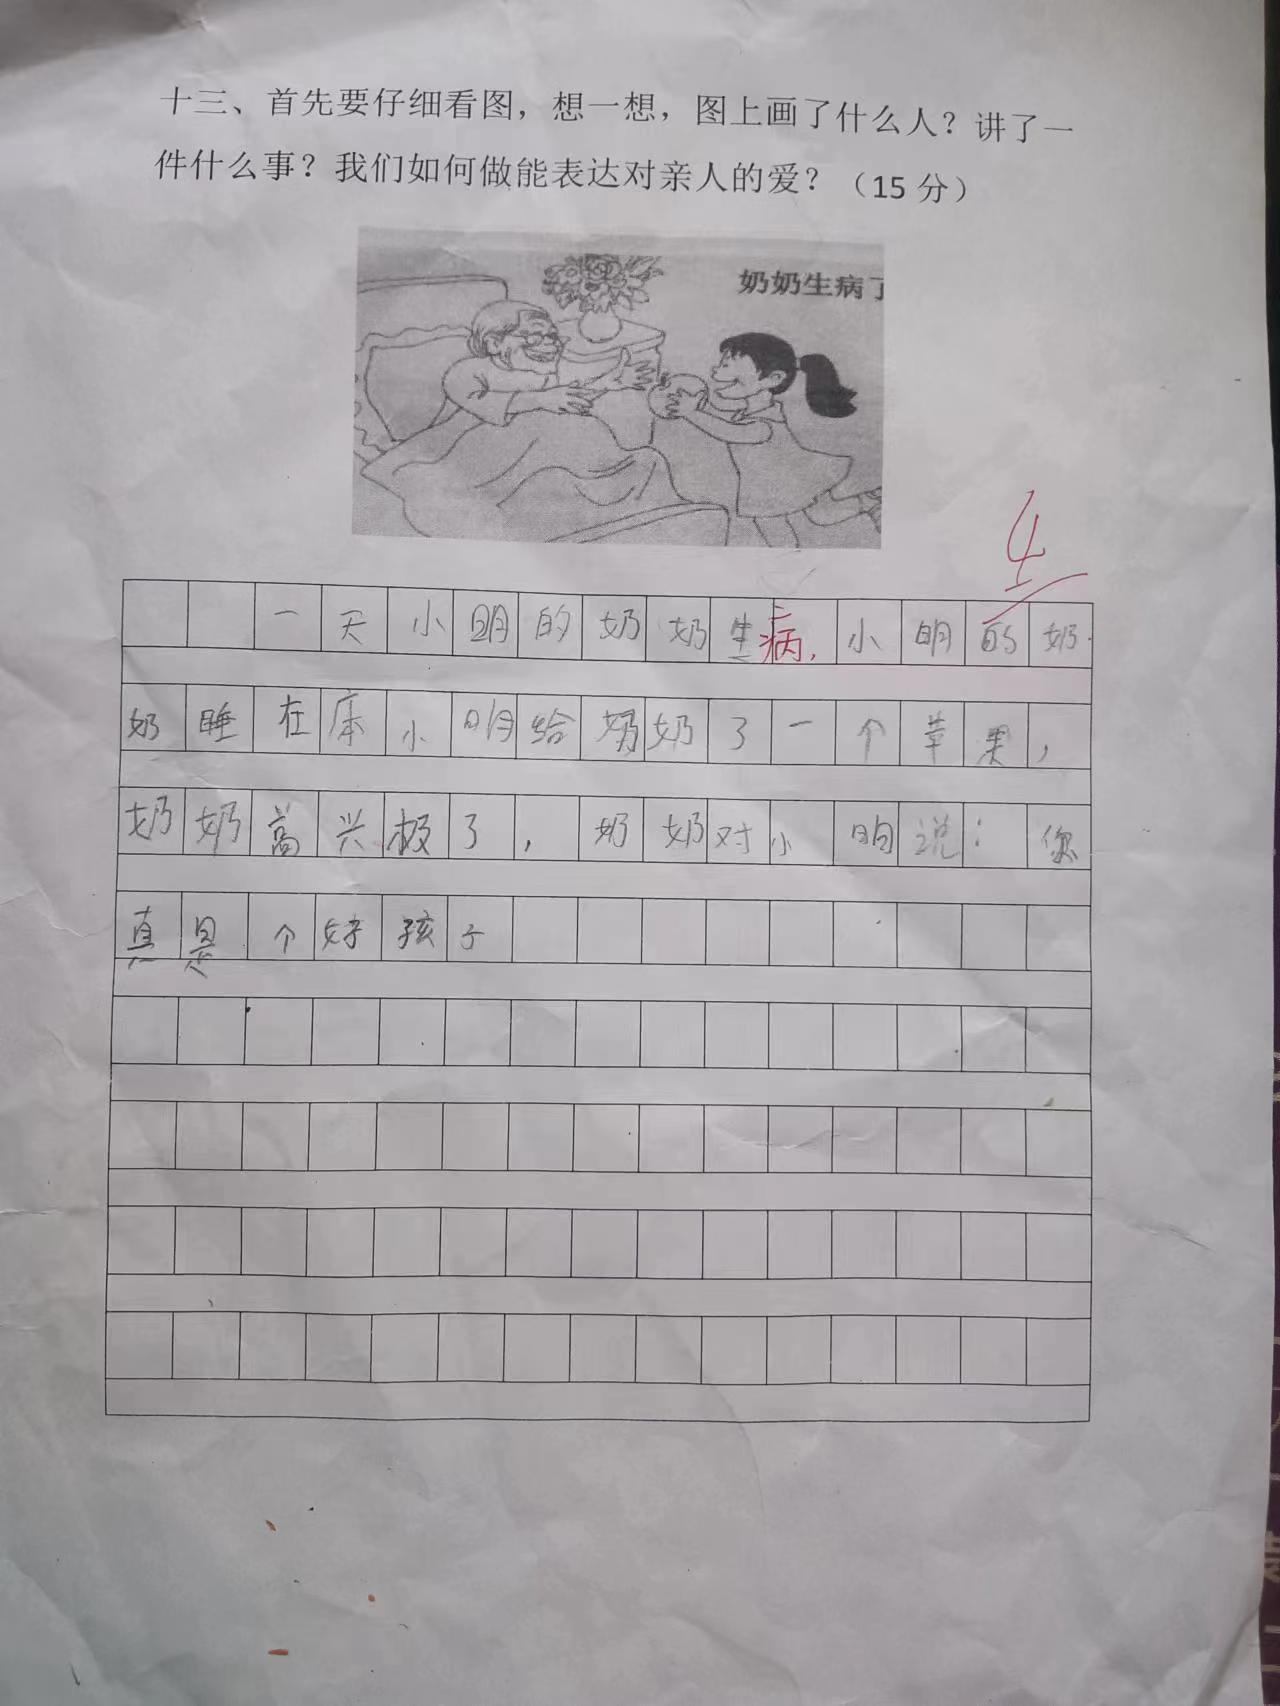 十三、首先要仔细看图，想一想，图上画了什么人？讲了一
件什么事？我们如何做能表达对亲人的爱？（15 分）
奶奶生病了
4
一天小明的奶奶生病，小明的奶
奶睡在床小明给奶奶了一个苹果，
奶奶高兴极了，奶奶对小明说：您
真是个好孩子